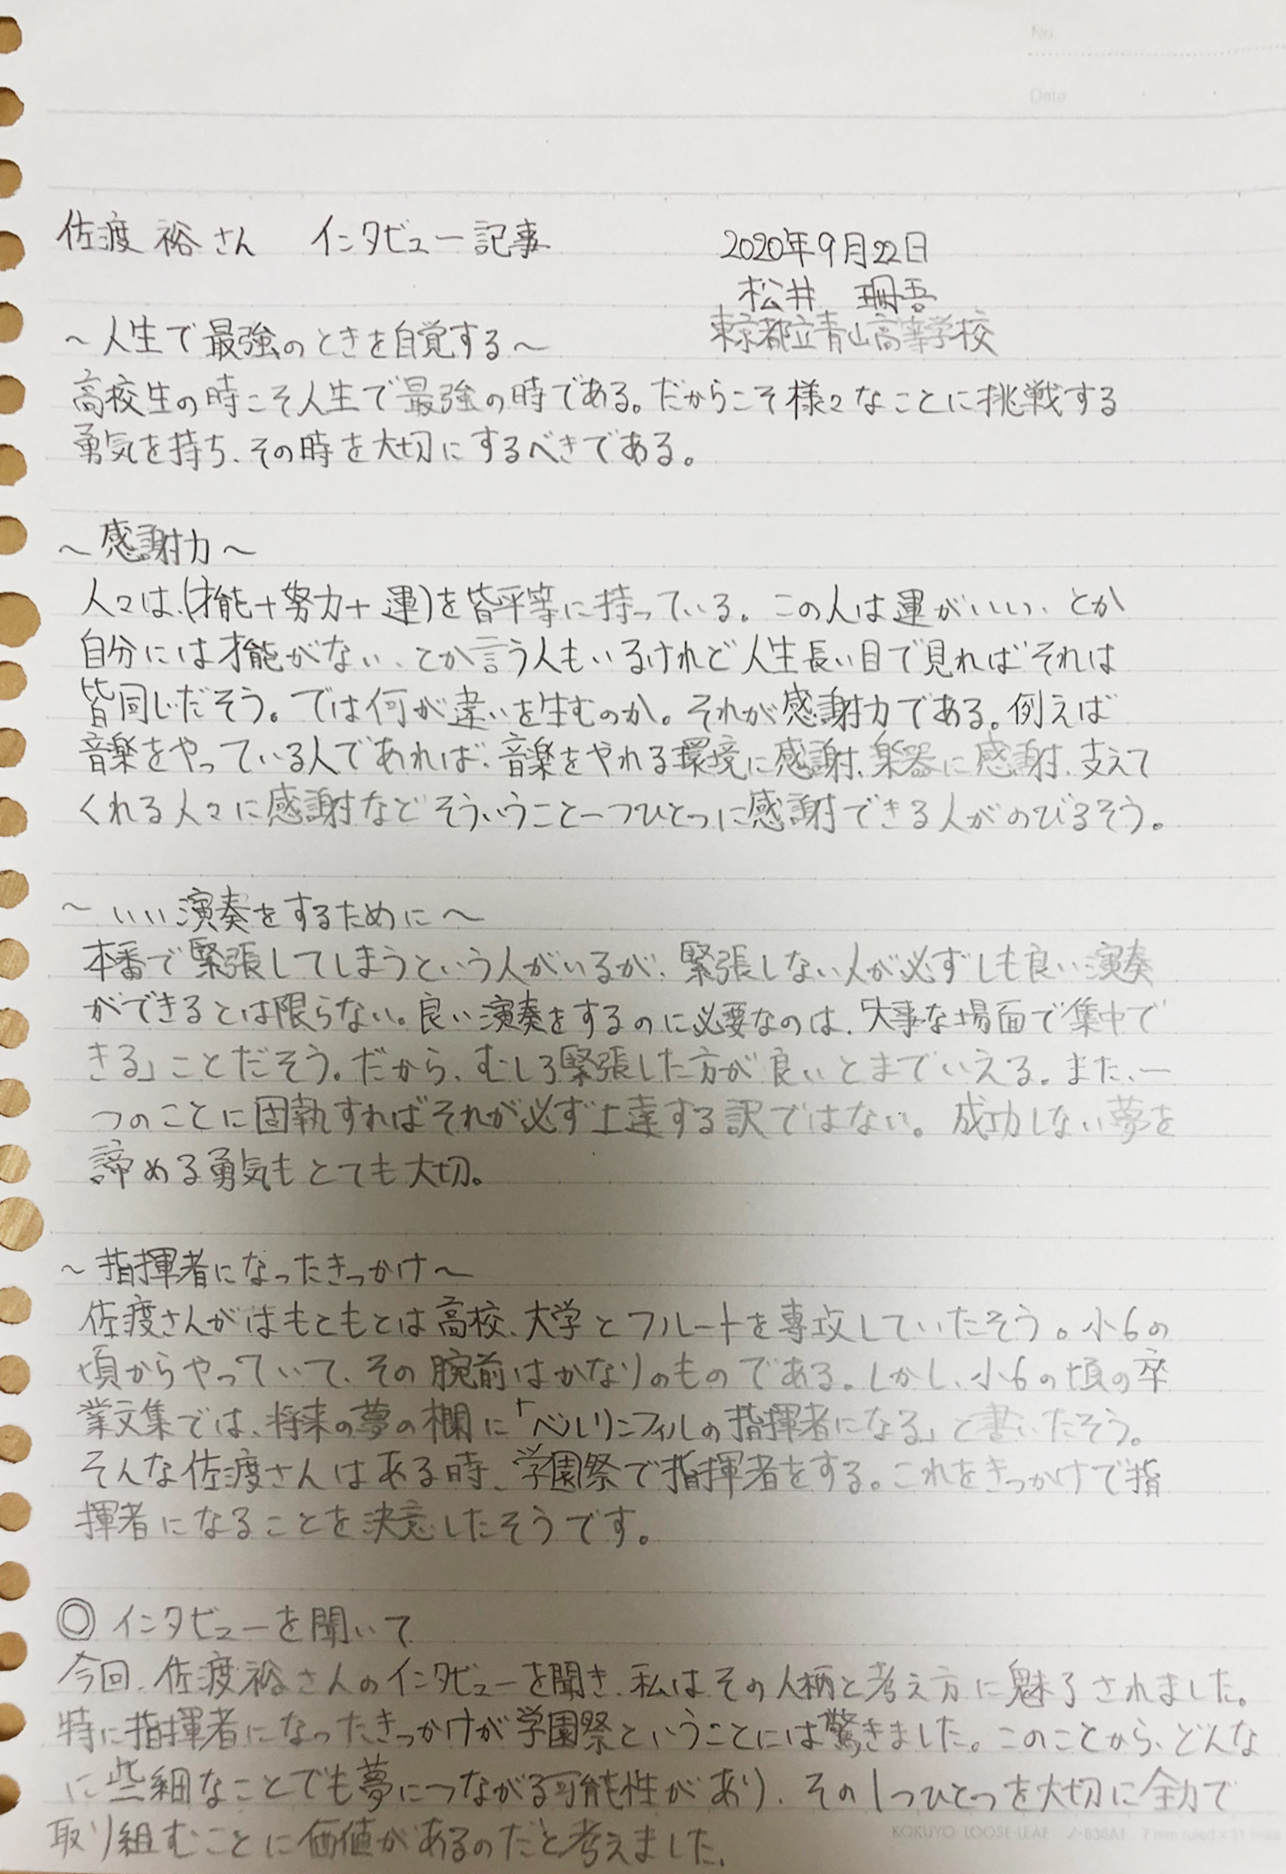 No.
Date
佐渡 裕さん インタビュー記事
2020年9月22日
松井 珊吾
東京都立青山高等学校
～人生で最強のときを自覚する～
高校生の時こそ人生で最強の時である。だからこそ様々なことに挑戦する
勇気を持ち、その時を大切にするべきである。
～感謝力～
人々は、(才能＋努力＋運)を皆平等に持っている。この人は運がいい、とか
自分には才能がない、とか言う人もいるけれど人生長い目で見ればそれは
皆同じだそう。では何が違いを生むのか。それが感謝力である。例えば
音楽をやっている人であれば、音楽をやれる環境に感謝、楽器に感謝、支えて
くれる人々に感謝などそういうこと一つひとつに感謝できる人がのびるそう。
～いい演奏をするために～
本番で緊張してしまうという人がいるが、緊張しない人が必ずしも良い演奏
ができるとは限らない。良い演奏をするのに必要なのは、「大事な場面で集中で
きる」ことだそう。だから、むしろ緊張した方が良いとまでいえる。また、一
つのことに固執すればそれが必ず上達する訳ではない。成功しない夢を
諦める勇気もとても大切。
～指揮者になったきっかけ～
佐渡さんがはもともとは高校、大学とフルートを専攻していたそう。小6の
頃からやっていて、その腕前はかなりのものである。しかし、小6の頃の卒
業文集では、将来の夢の欄に「ベルリンフィルの指揮者になる」と書いたそう。
そんな佐渡さんはある時、学園祭で指揮者をする。これをきっかけで指
揮者になることを決意したそうです。
◎インタビューを聞いて
今回、佐渡裕さんのインタビューを聞き、私はその人柄と考え方に魅了されました。
特に指揮者になったきっかけが学園祭ということには驚きました。このことから、どんな
に些細なことでも夢につながる可能性があり、その1つひとつを大切に全力で
取り組むことに価値があるのだと考えました。
KOKUYO LOOSE-LEAF ノ-836AT 7mm ruled×31 lines